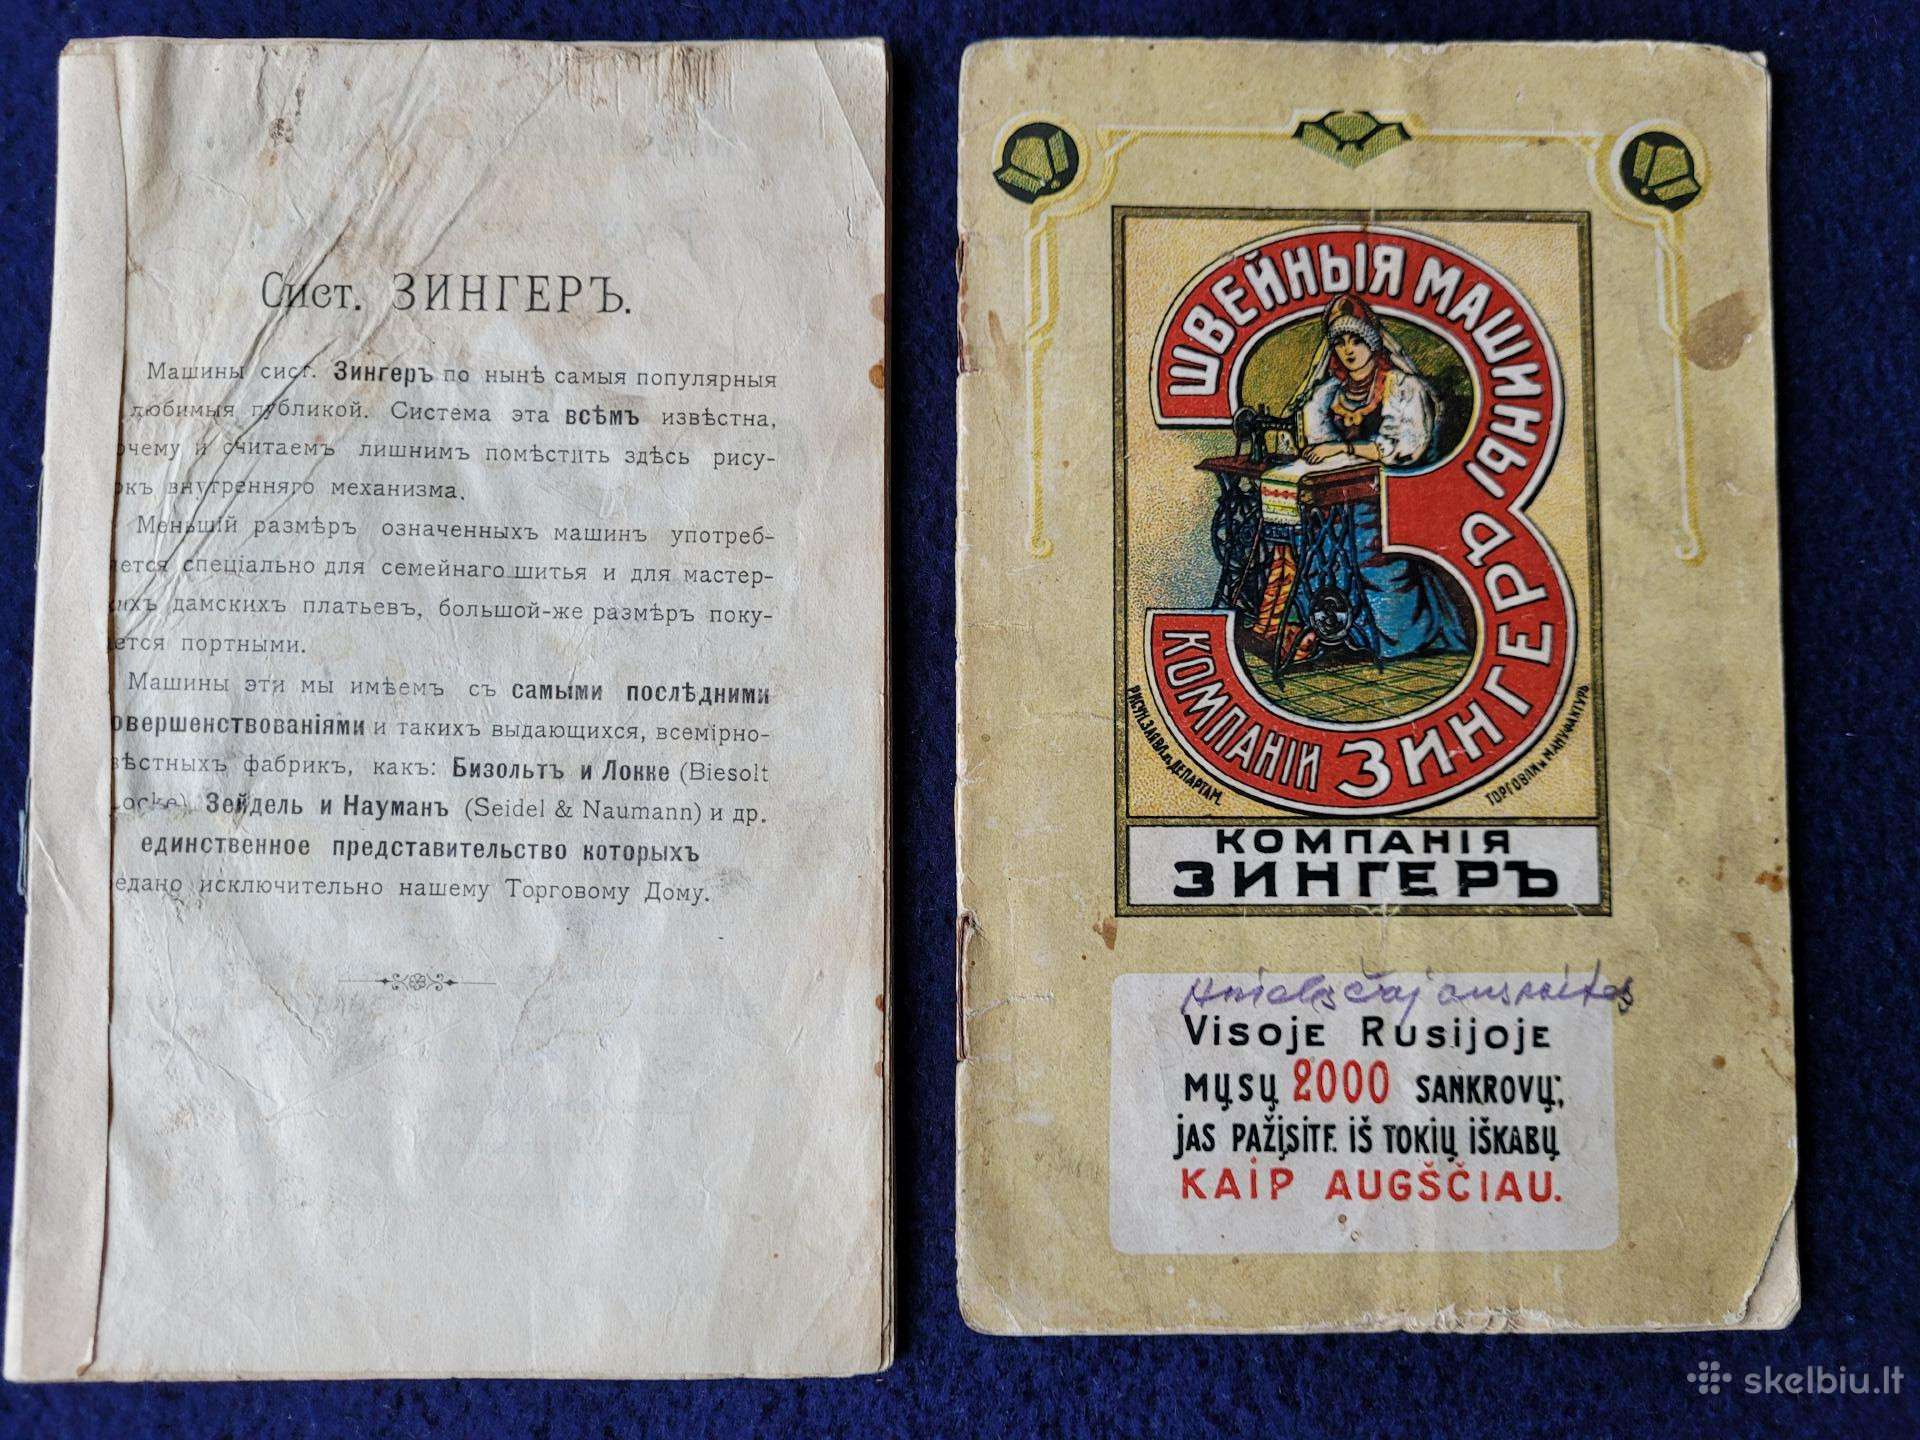 Сист. ЗИНГЕРЪ.
Машины сист. Зингеръ по нынѣ самыя популярныя
любимыя публикой. Система эта всѣмъ извѣстна,
очему и считаемъ лишнимъ помѣстить здѣсь рису-
окъ внутренняго механизма.
Меньшій размѣръ означенныхъ машинъ употреб-
ется спеціально для семейнаго шитья и для мастер-
ихъ дамскихъ платьевъ, большой-же размѣръ поку-
ется портными.
Машины эти мы имѣемъ съ самыми послѣдними
овершенствованіями и такихъ выдающихся, всемірно-
ѣстныхъ фабрикъ, какъ: Бизольтъ и Локке (Biesolt
Locke) Зейдель и Науманъ (Seidel & Naumann) и др.
единственное представительство которыхъ
едано исключительно нашему Торговому Дому.
ШВЕЙНЫЯ МАШИНЫ
КОМПАНІИ ЗИНГЕРЪ
РИСУН. ЗАЯВЛ. ВЪ ДЕПАРТАМ.
ТОРГОВЛИ и МАНУФАКТУРЪ
КОМПАНІЯ
ЗИНГЕРЪ
Visoje Rusijoje
MŲSŲ 2000 SANKROVŲ;
JAS PAŽĮSITE IŠ TOKIŲ IŠKABŲ
KAIP AUGŠČIAU.
skelbiu.lt